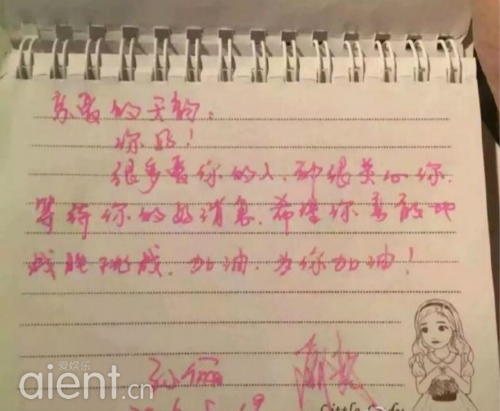 亲爱的天韵：
你好！
很多爱你的人，都很关心你，
等待你的好消息，希望你勇敢地
战胜挑战，加油，为你加油！
孙俪
爱娱乐
aient.cn
Little